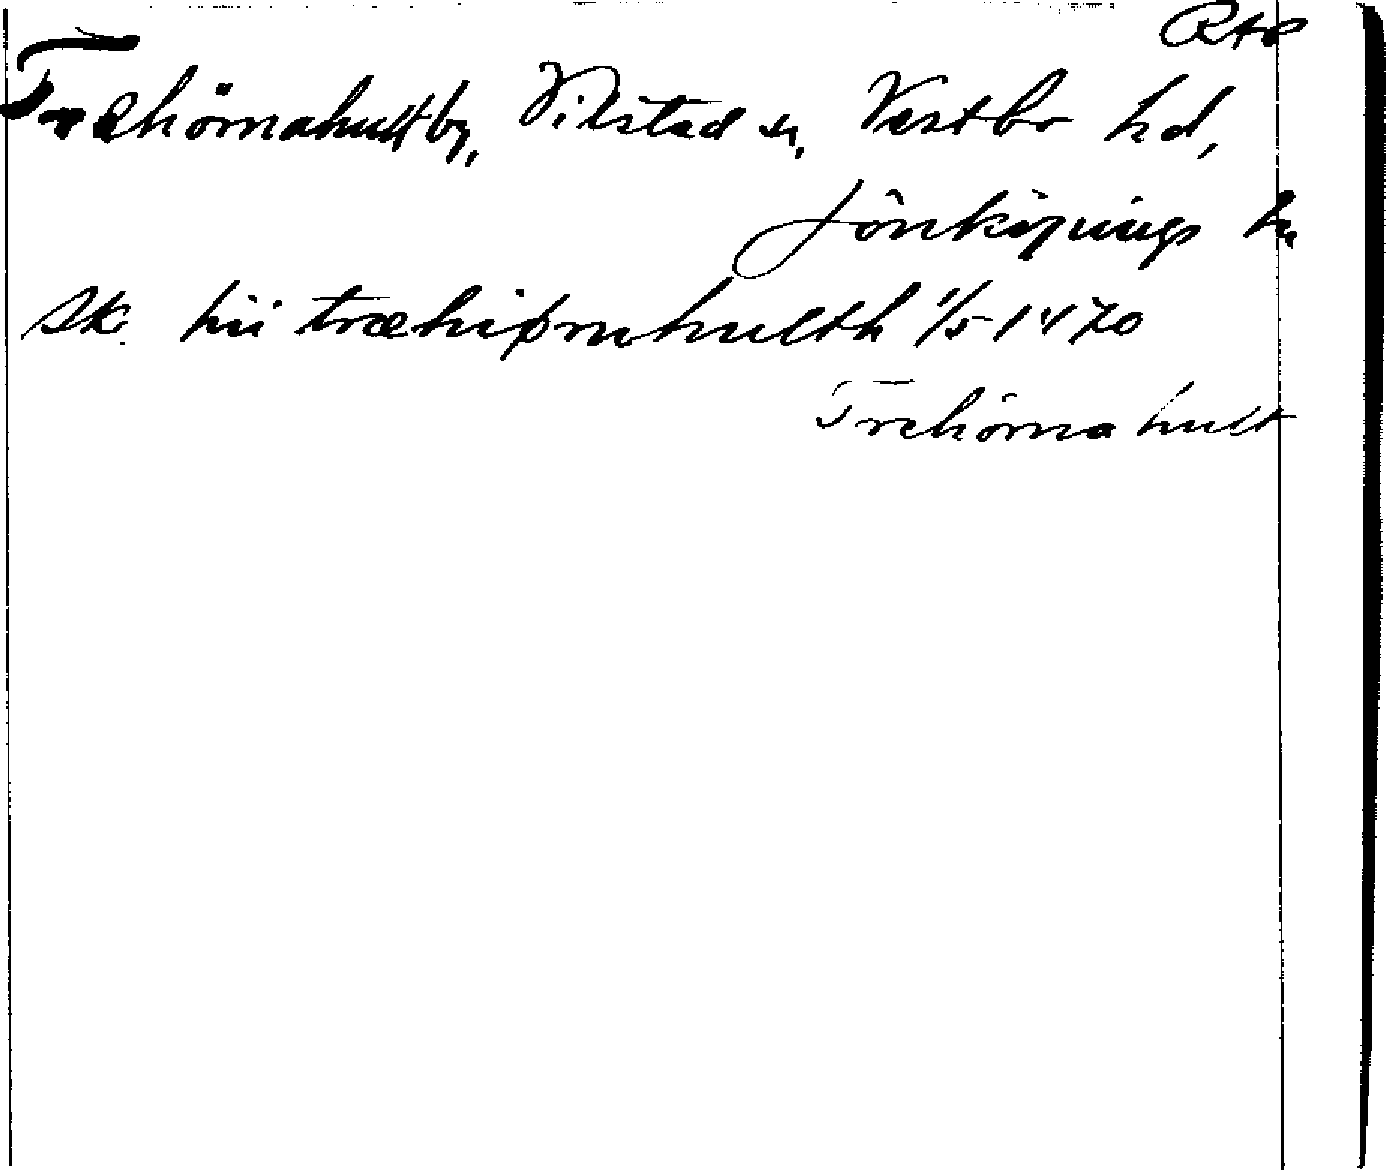 RAP
Trehörnahult by, Vilstad sn, Västbo hd,
Jönköpings ln
sk. hii træhiørnahulth 1/5 1470
Trehörnahult